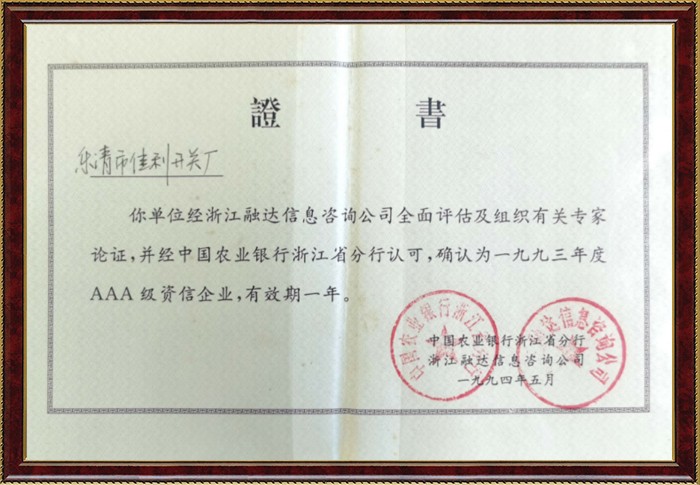 證 書
乐清市佳利开关厂
你单位经浙江融达信息咨询公司全面评估及组织有关专家
论证,并经中国农业银行浙江省分行认可,确认为一九九三年度
AAA 级资信企业,有效期一年。
中国农业银行浙江省分行
浙江融达信息咨询公司
一九九四年五月